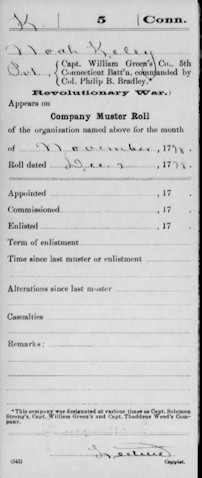 K. 5 Conn.
Noah Kelsy
Pvt, Capt. William Green's Co., 5th
Connecticut Batt'n, commanded by
Col. Philip B. Bradley.*
(Revolutionary War.)
Appears on
Company Muster Roll
of the organization named above for the month
of November, 1778.
Roll dated Dec 2, 1778.
Appointed , 17 .
Commissioned , 17 .
Enlisted , 17 .
Term of enlistment
Time since last muster or enlistment
Alterations since last muster
Casualties
Remarks:
*This company was designated at various times as Capt. Solomon
Strong's, Capt. William Green's and Capt. Thaddeus Weed's Com-
pany.
(543) Copyist.